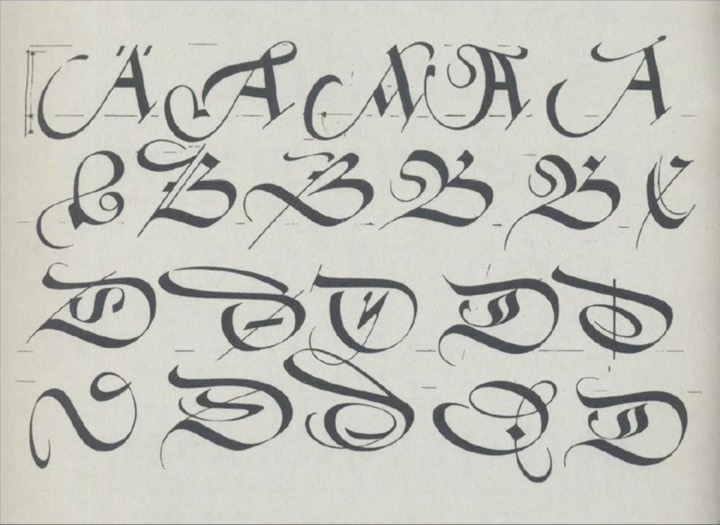 Ä A A A A
B B B B B C
D D D D D
D D D D D